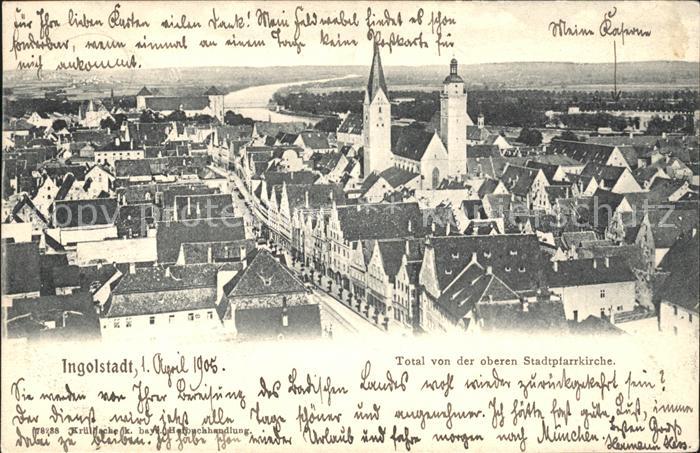 für Ihre lieben Karten vielen Dank! Mein Feldwebel findet es schon
sonderbar, wenn einmal an einem Tage keine Postkarte für
mich ankommt.
Meine Kaserne
Ingolstadt, 1. April 1905.
Total von der oberen Stadtpfarrkirche.
Sie werden von Ihrer Bereisung des Badischen Landes wohl wieder zurückgekehrt sein?
Der Dienst wird jetzt alle Tage schöner und angenehmer. Ich hätte fast gute Lust, immer
dabei zu bleiben. Ich habe schon wieder Urlaub und fahre morgen nach München.
78238 Krüll'sche k. bayr. Hofbuchhandlung.
Besten Gruß
Hermann